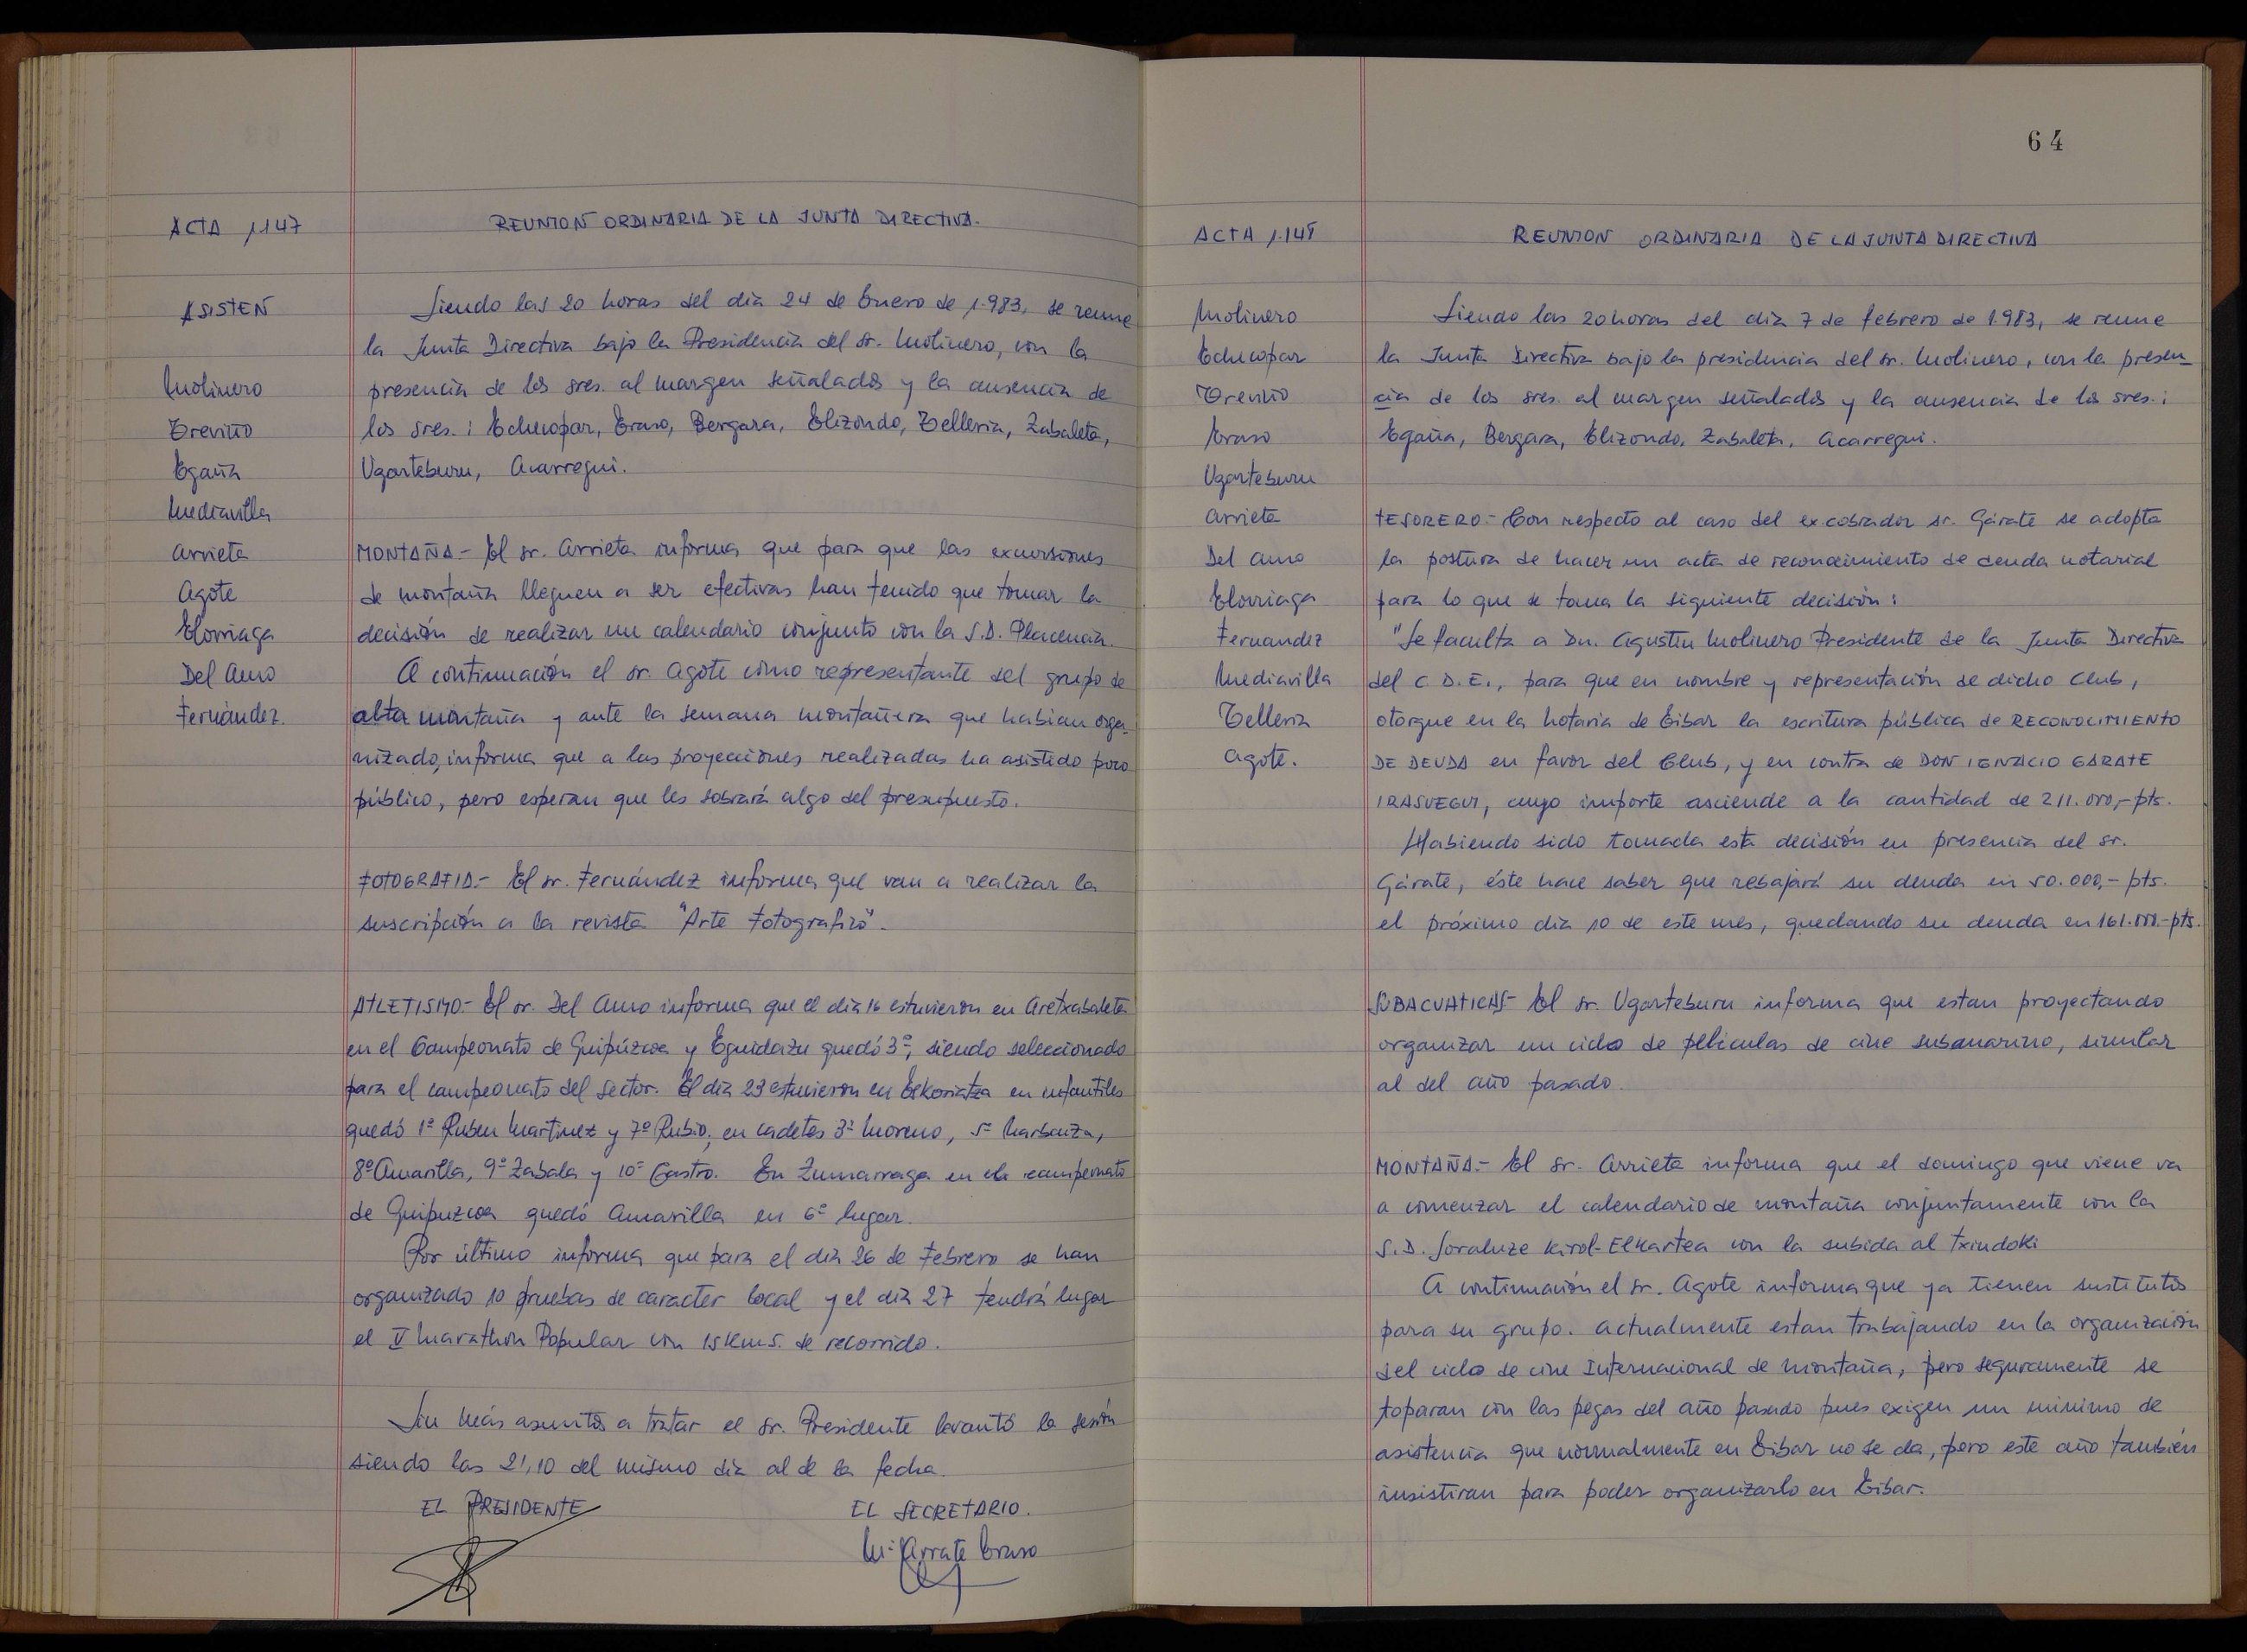 ACTA 1.147
REUNION ORDINARIA DE LA JUNTA DIRECTIVA.
ASISTEN
Molinero
Treviño
Egaña
Mediavilla
Arrieta
Agote
Elorriaga
Del Amo
Fernández.
Siendo las 20 horas del dia 24 de Enero de 1.983, se reune
la Junta Directiva bajo la Presidencia del sr. Molinero, con la
presencia de los sres. al margen señalados y la ausencia de
los sres.: Echeopar, Eraso, Bergara, Elizondo, Telleria, Zabaleta,
Ugarteburu, Acarregui.
MONTAÑA.- El sr. Arrieta informa que para que las excursiones
de montaña lleguen a ser efectivas han tenido que tomar la
decisión de realizar un calendario conjunto con la S.D. Placencia.
A continuación el sr. Agote como representante del grupo de
alta montaña y ante la semana montañera que habian orga-
nizado, informa que a las proyecciones realizadas ha asistido poco
público, pero esperan que les sobrará algo del presupuesto.
FOTOGRAFIA.- El sr. Fernández informa que van a realizar la
suscripción a la revista "Arte Fotografico".
ATLETISMO.- El sr. Del Amo informa que el dia 16 estuvieron en Aretxabaleta
en el Campeonato de Guipúzcoa y Eguidazu quedó 3º, siendo seleccionado
para el campeonato del sector. El dia 23 estuvieron en Eskoriatza en infantiles
quedó 1º Ruben Martinez y 7º Rubio; en cadetes 3º Moreno, 5º
8º Amarilla, 9º Zabala y 10º Castro. En Zumarraga en el campeonato
de Guipuzcoa quedó Amarilla en 6º lugar.
Por último informa que para el dia 26 de Febrero se han
organizado 10 pruebas de caracter local y el dia 27 tendrá lugar
el V Marathon Popular con 15 Kms. de recorrido.
Sin más asuntos a tratar el sr. Presidente levantó la sesión
siendo las 21,10 del mismo dia al de la fecha.
EL PRESIDENTE
EL SECRETARIO.
Mª Arrate Eraso
64
ACTA 1.148
REUNION ORDINARIA DE LA JUNTA DIRECTIVA
Molinero
Echeopar
Treviño
Eraso
Ugarteburu
Arrieta
Del Amo
Elorriaga
Fernandez
Mediavilla
Telleria
Agote.
Siendo las 20 horas del dia 7 de febrero de 1.983, se reune
la Junta Directiva bajo la presidencia del sr. Molinero, con la presen-
cia de los sres. al margen señalados y la ausencia de los sres.:
Egaña, Bergara, Elizondo, Zabaleta, Acarregui.
TESORERO.- Con respecto al caso del excobrador sr. Gárate se adopta
la postura de hacer un acta de reconocimiento de deuda notarial
para lo que se toma la siguiente decisión:
"Se faculta a Dn. Agustin Molinero Presidente de la Junta Directiva
del C.D.E., para que en nombre y representación de dicho Club,
otorgue en la Notaria de Eibar la escritura pública de RECONOCIMIENTO
DE DEUDA en favor del Club, y en contra de DON IGNACIO GARATE
IRASUEGUI, cuyo importe asciende a la cantidad de 211.000,- pts.
Habiendo sido tomada esta decisión en presencia del sr.
Gárate, éste hace saber que rebajará su deuda en 50.000,- pts.
el próximo dia 10 de este mes, quedando su deuda en 161.000.- pts.
SUBACUATICAS- El sr. Ugarteburu informa que estan proyectando
organizar un ciclo de peliculas de cine submarino, similar
al del año pasado.
MONTAÑA.- El sr. Arrieta informa que el domingo que viene va
a comenzar el calendario de montaña conjuntamente con la
S.D. Soraluze Kirol-Elkartea con la subida al Txindoki
A continuación el sr. Agote informa que ya tienen sustitutos
para su grupo. Actualmente estan trabajando en la organización
del ciclo de cine Internacional de Montaña, pero seguramente se
toparan con las pegas del año pasado pues exigen un minimo de
asistencia que normalmente en Eibar no se da, pero este año también
insistiran para poder organizarlo en Eibar.